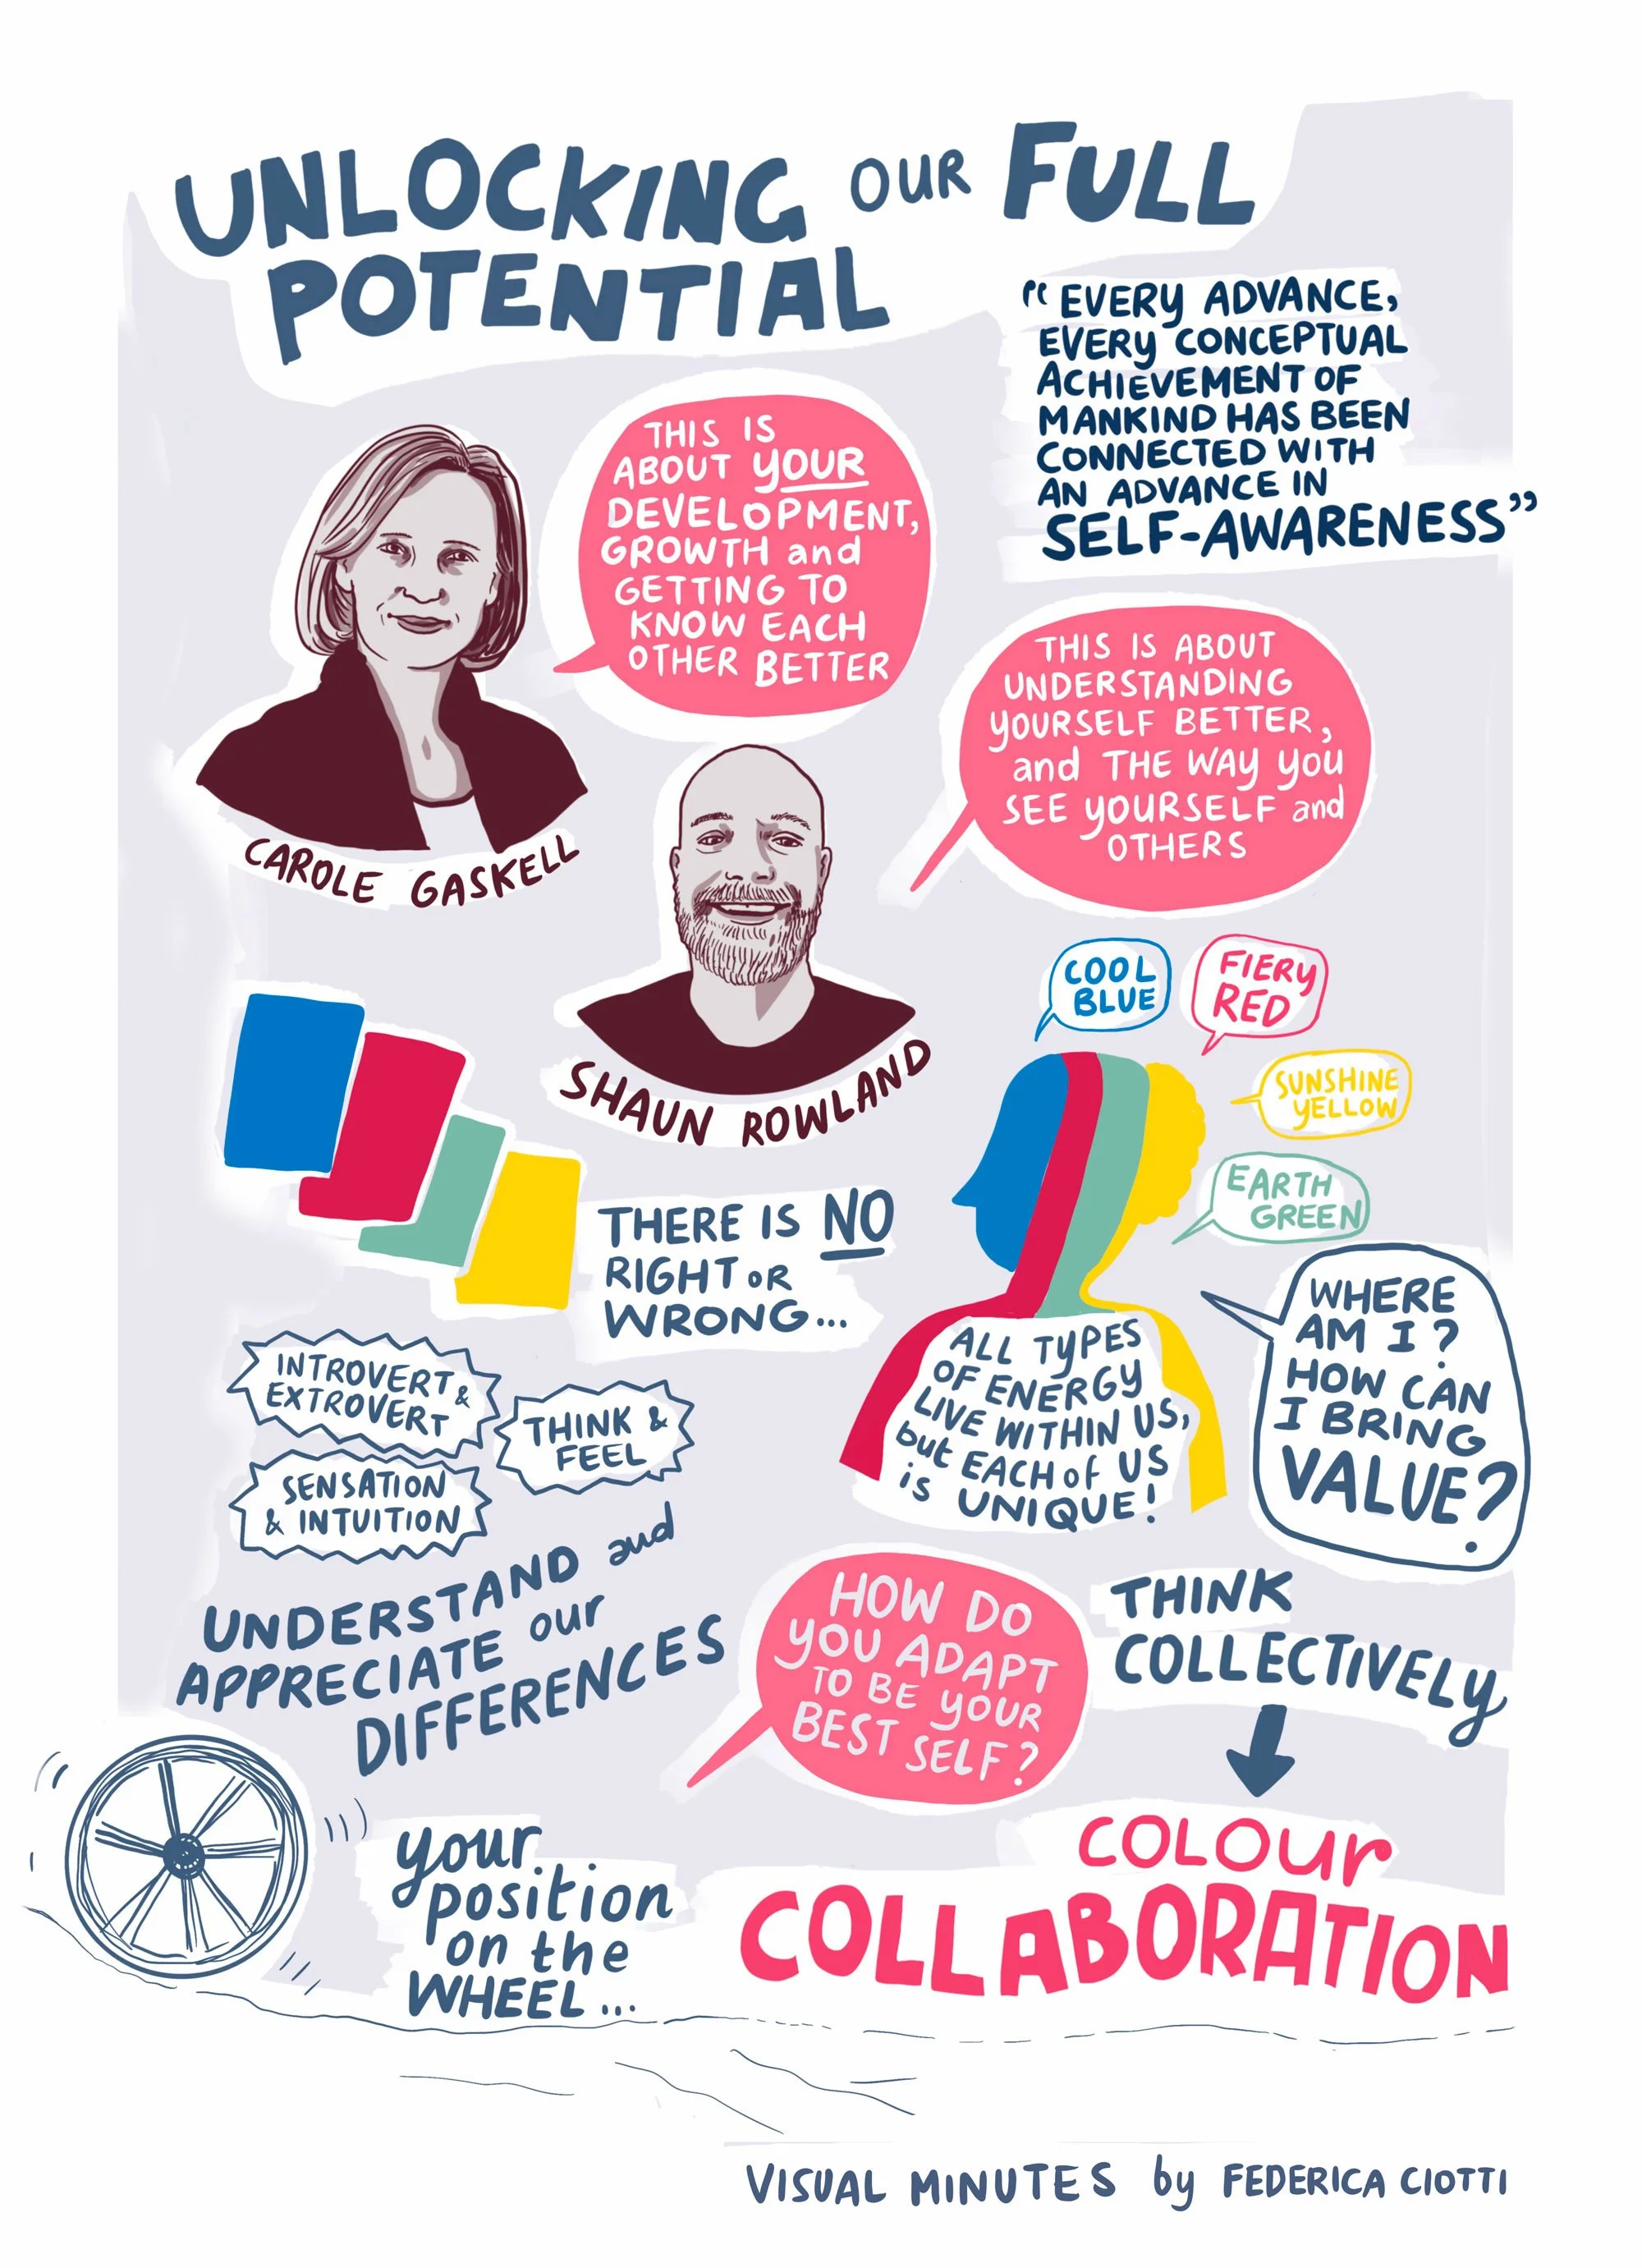 UNLOCKING OUR FULL
POTENTIAL
"EVERY ADVANCE,
EVERY CONCEPTUAL
ACHIEVEMENT OF
MANKIND HAS BEEN
CONNECTED WITH
AN ADVANCE IN
SELF-AWARENESS"
THIS IS
ABOUT YOUR
DEVELOPMENT,
GROWTH and
GETTING TO
KNOW EACH
OTHER BETTER
CAROLE GASKELL
THIS IS ABOUT
UNDERSTANDING
YOURSELF BETTER,
and THE WAY YOU
SEE YOURSELF and
OTHERS
SHAUN ROWLAND
COOL
BLUE
FIERY
RED
SUNSHINE
YELLOW
EARTH
GREEN
THERE IS NO
RIGHT OR
WRONG...
WHERE
AM I?
HOW CAN
I BRING
VALUE?
ALL TYPES
OF ENERGY
LIVE WITHIN US,
but EACH of US
is UNIQUE!
INTROVERT &
EXTROVERT
THINK &
FEEL
SENSATION
& INTUITION
UNDERSTAND and
APPRECIATE our
DIFFERENCES
HOW DO
YOU ADAPT
TO BE YOUR
BEST SELF?
THINK
COLLECTIVELY
COLOUR
COLLABORATION
your
position
on the
WHEEL...
VISUAL MINUTES by FEDERICA CIOTTI